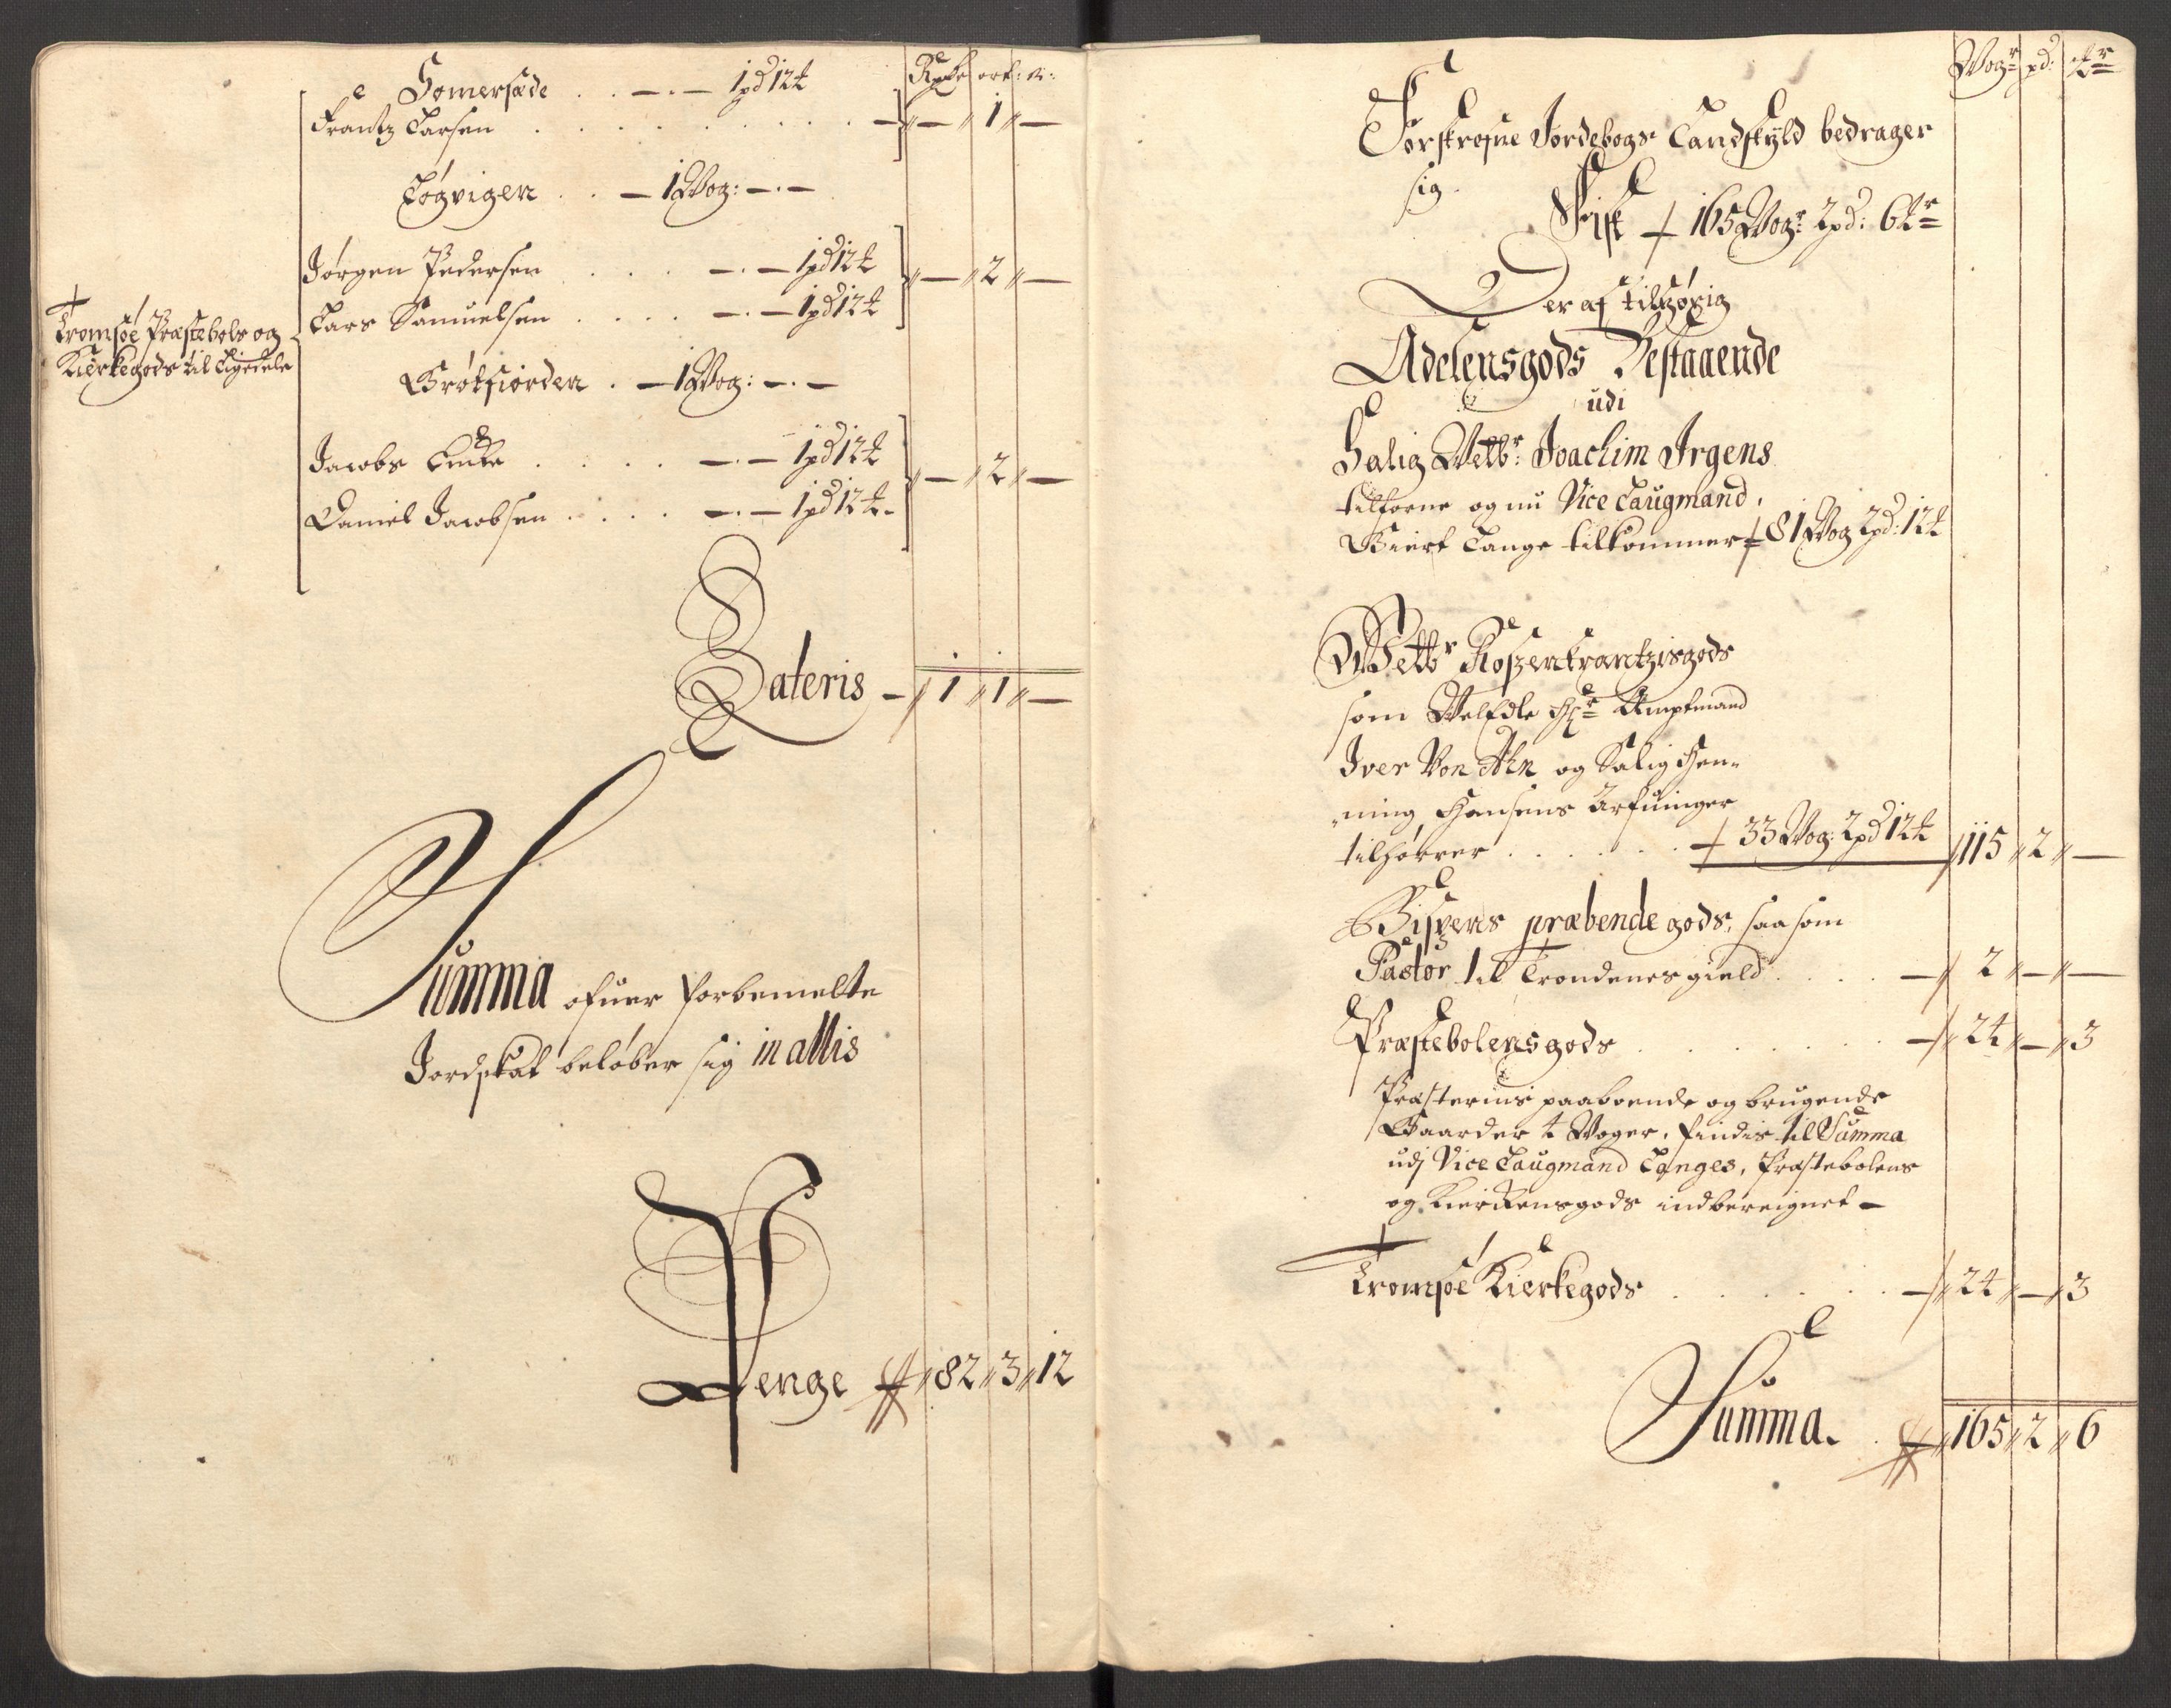 Rixdr ort: s:
Somersæde . . — . — 1 pd 12 ℔
Frantz Larsen . . . . . . . — „ — „ 1 „ —
Løgvigen . . — 1 Wog: — . —
Jørgen Pedersen . . . — . — 1 pd 12 ℔
„ — „ 2 „ —
Lars Samuelsen . . . . — . — 1 pd 12 ℔
Tromsøe Præstebols og
Kierkegods til Ligedele
Grøtfiorden . — 1 Wog: — . —
Jacobs Encke . . . . — . — 1 pd 12 ℔
„ — „ 2 „ —
Daniel Jacobsen . . . . — . — 1 pd 12 ℔.
Lateris — „ 1 „ 1 „ —
Summa ofuer forbemelte
Jordskat beløber sig in allis
Penge „ 82 „ 3 „ 12
Wogr pd: ℔r
Forskrefne Jordebogs Landskyld bedrager
sig .
Fisk 165 Wogr 2 pd: 6 ℔r
Der af tilhørig
Adelensgods Bestaaende
udi
Salig Welbr: Joachim Irgens
tilforne og nu Vice Laugmand,
Giert Lange tilkommer 81 Wog 2 pd: 12 ℔
Welbr Roszenkrantzisgods
som WelEdle Hr Amptmand
Iver Von Ahn og Salig Hen-
-ning Hansens Arfuinger
tilhører . . . . . 33 Wog: 2 pd 12 ℔ „ 115 „ 2 „ —
Bispens præbende gods, saasom
Pastor til Trondenes gield . . . — „ 2 „ — „ —
Præstebolens gods . . . . . . — „ 24 „ — „ 3
Præsternis paaboende og brugende
Gaarder 4 Woger, findis til Summa
udj Vice Laugmand Langes, Præstebolens
og Kierkens gods indbereignet —
Tromsøe Kierkegods . . . . . — „ 24 „ — „ 3
Summa. — „ 165 „ 2 „ 6